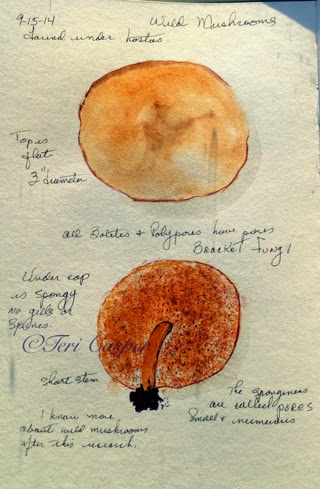 9-15-14
Wild Mushrooms
found under hostas.
Top is
flat
3" diameter
all Boletes & Polypores have pores
Bracket Fungi
Under cap
is spongy
No gills or
Spines.
©Teri Casper
short stem
The sponginess
are called PORES
Small & numerous
I know more
about wild mushrooms
after this research.